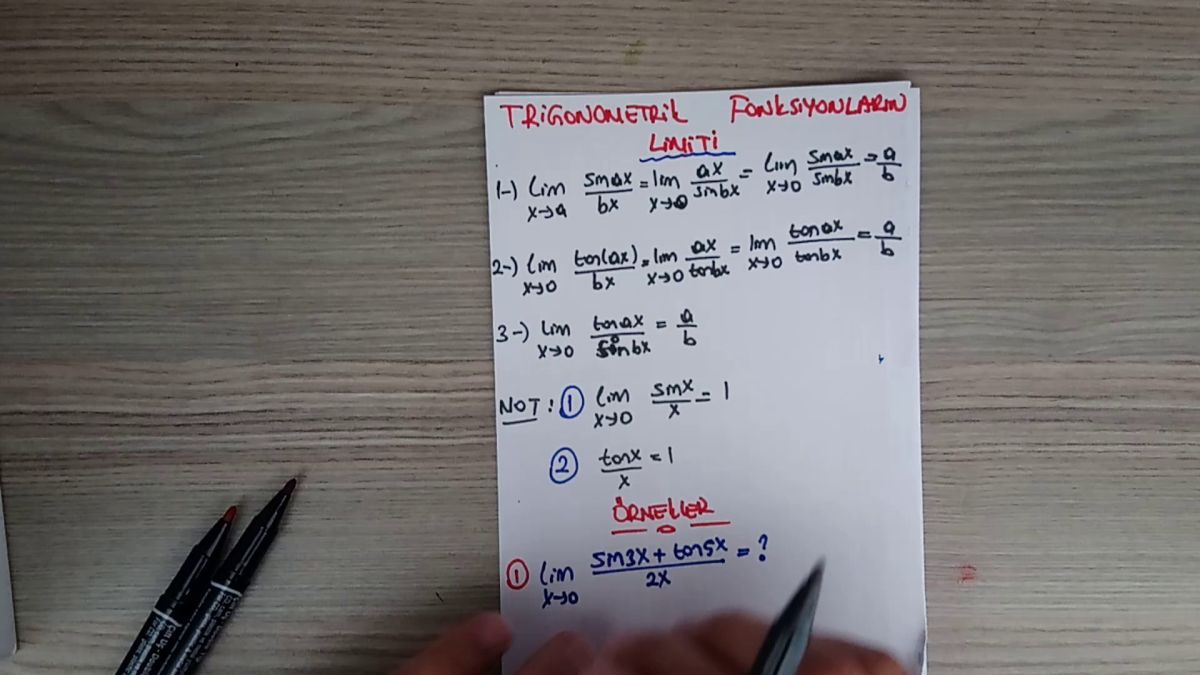 TRİGONOMETRİK FONKSİYONLARIN
LİMİTİ
1-) lim x→a sinax/bx = lim x→0 ax/sinbx = lim x→0 sinax/sinbx = a/b
2-) lim x→0 tan(ax)/bx = lim x→0 ax/tanbx = lim x→0 tanax/tanbx = a/b
3-) lim x→0 tanax/sinbx = a/b
NOT: ① lim x→0 sinx/x = 1
② tanx/x = 1
ÖRNEKLER
① lim x→0 sin3x + tan5x/2x = ?